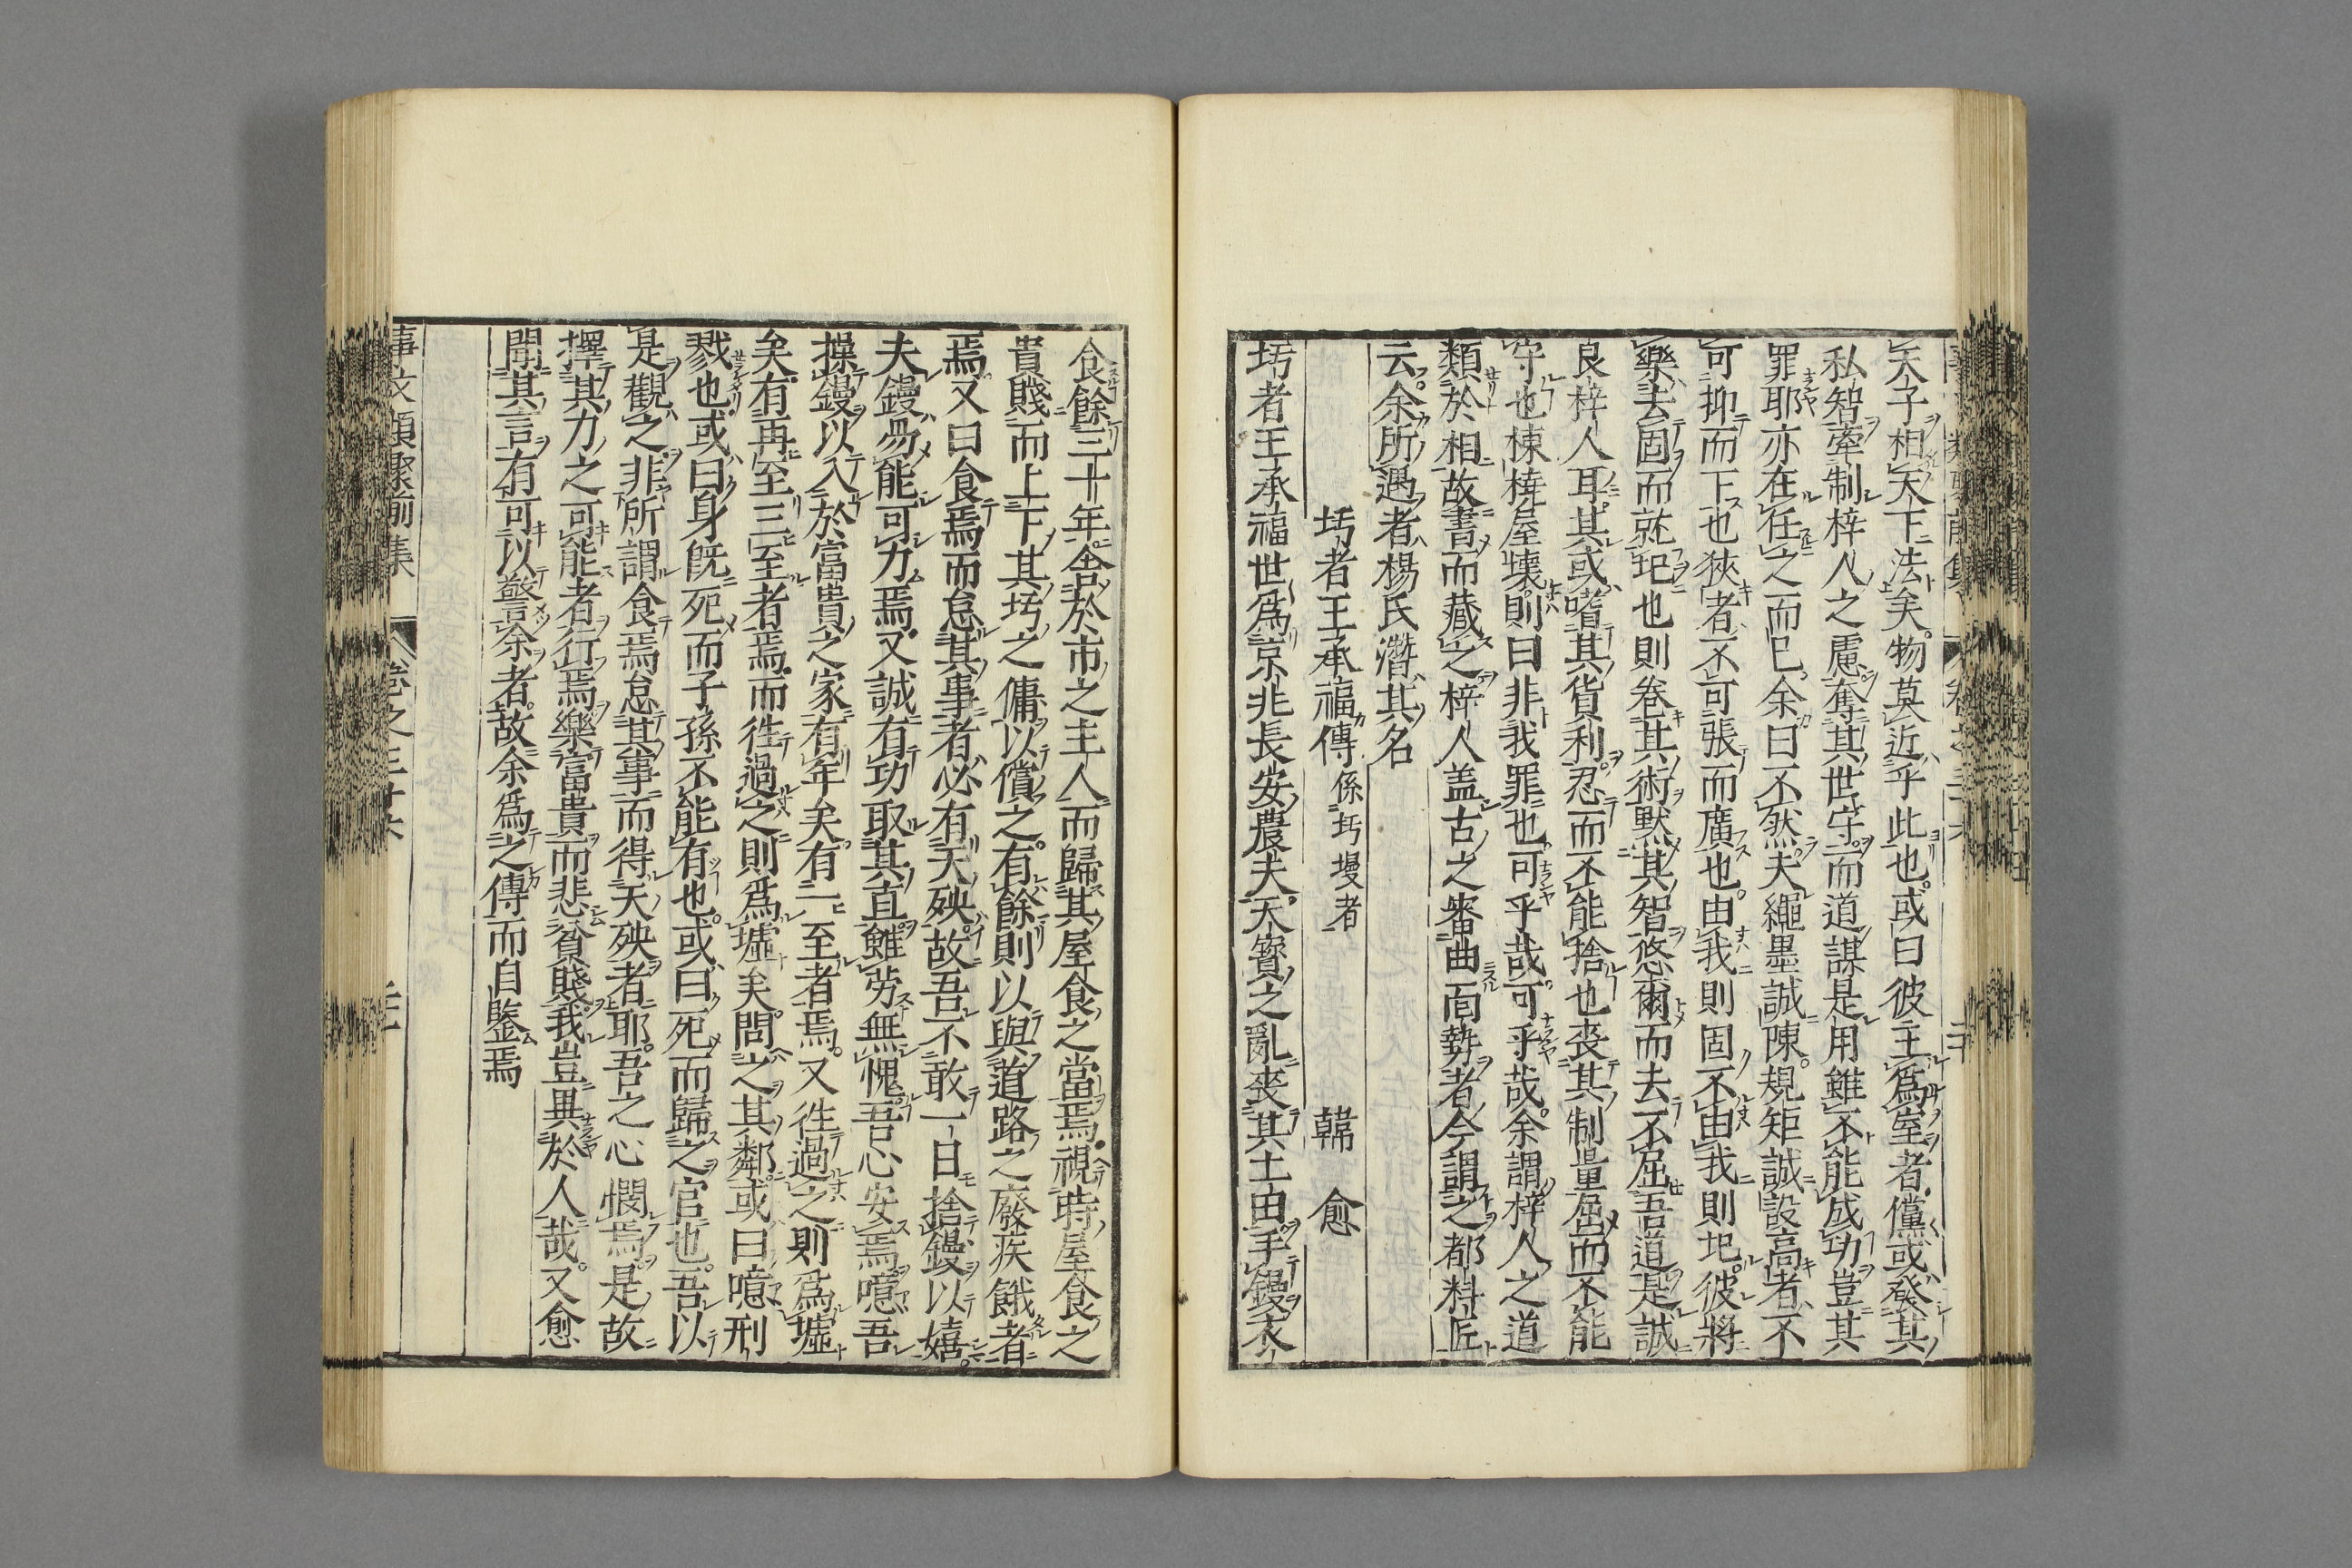 天子相天下法矣物莫近乎此也或曰彼主爲室者儻或發其
私智牽制梓人之慮奪其世守而道謀是用雖不能成功豈其
罪耶亦在任之而已余曰不然夫繩墨誠陳規矩誠設高者不
可抑而下也狹者不可張而廣也由我則固不由我則圯彼將
樂去固而就圯也則卷其術默其智悠爾而去不屈吾道是誠
良梓人耳其或嗜其貨利忍而不能捨也丧其制量屈而不能
守也棟橈屋壞則曰非我罪也可乎哉可乎哉余謂梓人之道
類於相故書而藏之梓人盖古之審曲面勢者今謂之都料匠
云余所遇者楊氏潛其名
圬者王承福傳 係圬墁者 韓 愈
圬者王承福世爲京兆長安農夫天寳之亂丧其土田手鏝衣
食餘三十年舍於市之主人而歸其屋食之當焉視時屋食之
貴賤而上下其圬之傭以償之有餘則以與道路之廢疾餓者
焉又曰食焉而怠其事者必有天殃故吾不敢一日捨鏝以嬉
夫鏝易能可力焉又誠有功取其直雖勞無愧吾心安焉噫吾
操鏝以入於富貴之家有年矣有一至者焉又徃過之則爲墟
矣有再至三至者焉而徃過之則爲墟矣問之其鄰或曰噫刑
戮也或曰身既死而子孫不能有也或曰死而歸之官也吾以
是觀之非所謂食焉怠其事而得天殃者耶吾之心憫焉是故
擇其力之可能者行焉樂富貴而悲貧賤我豈異於人哉又愈
聞其言有可以警余者故余爲之傳而自鑒焉
事文類聚前集 卷之三十六